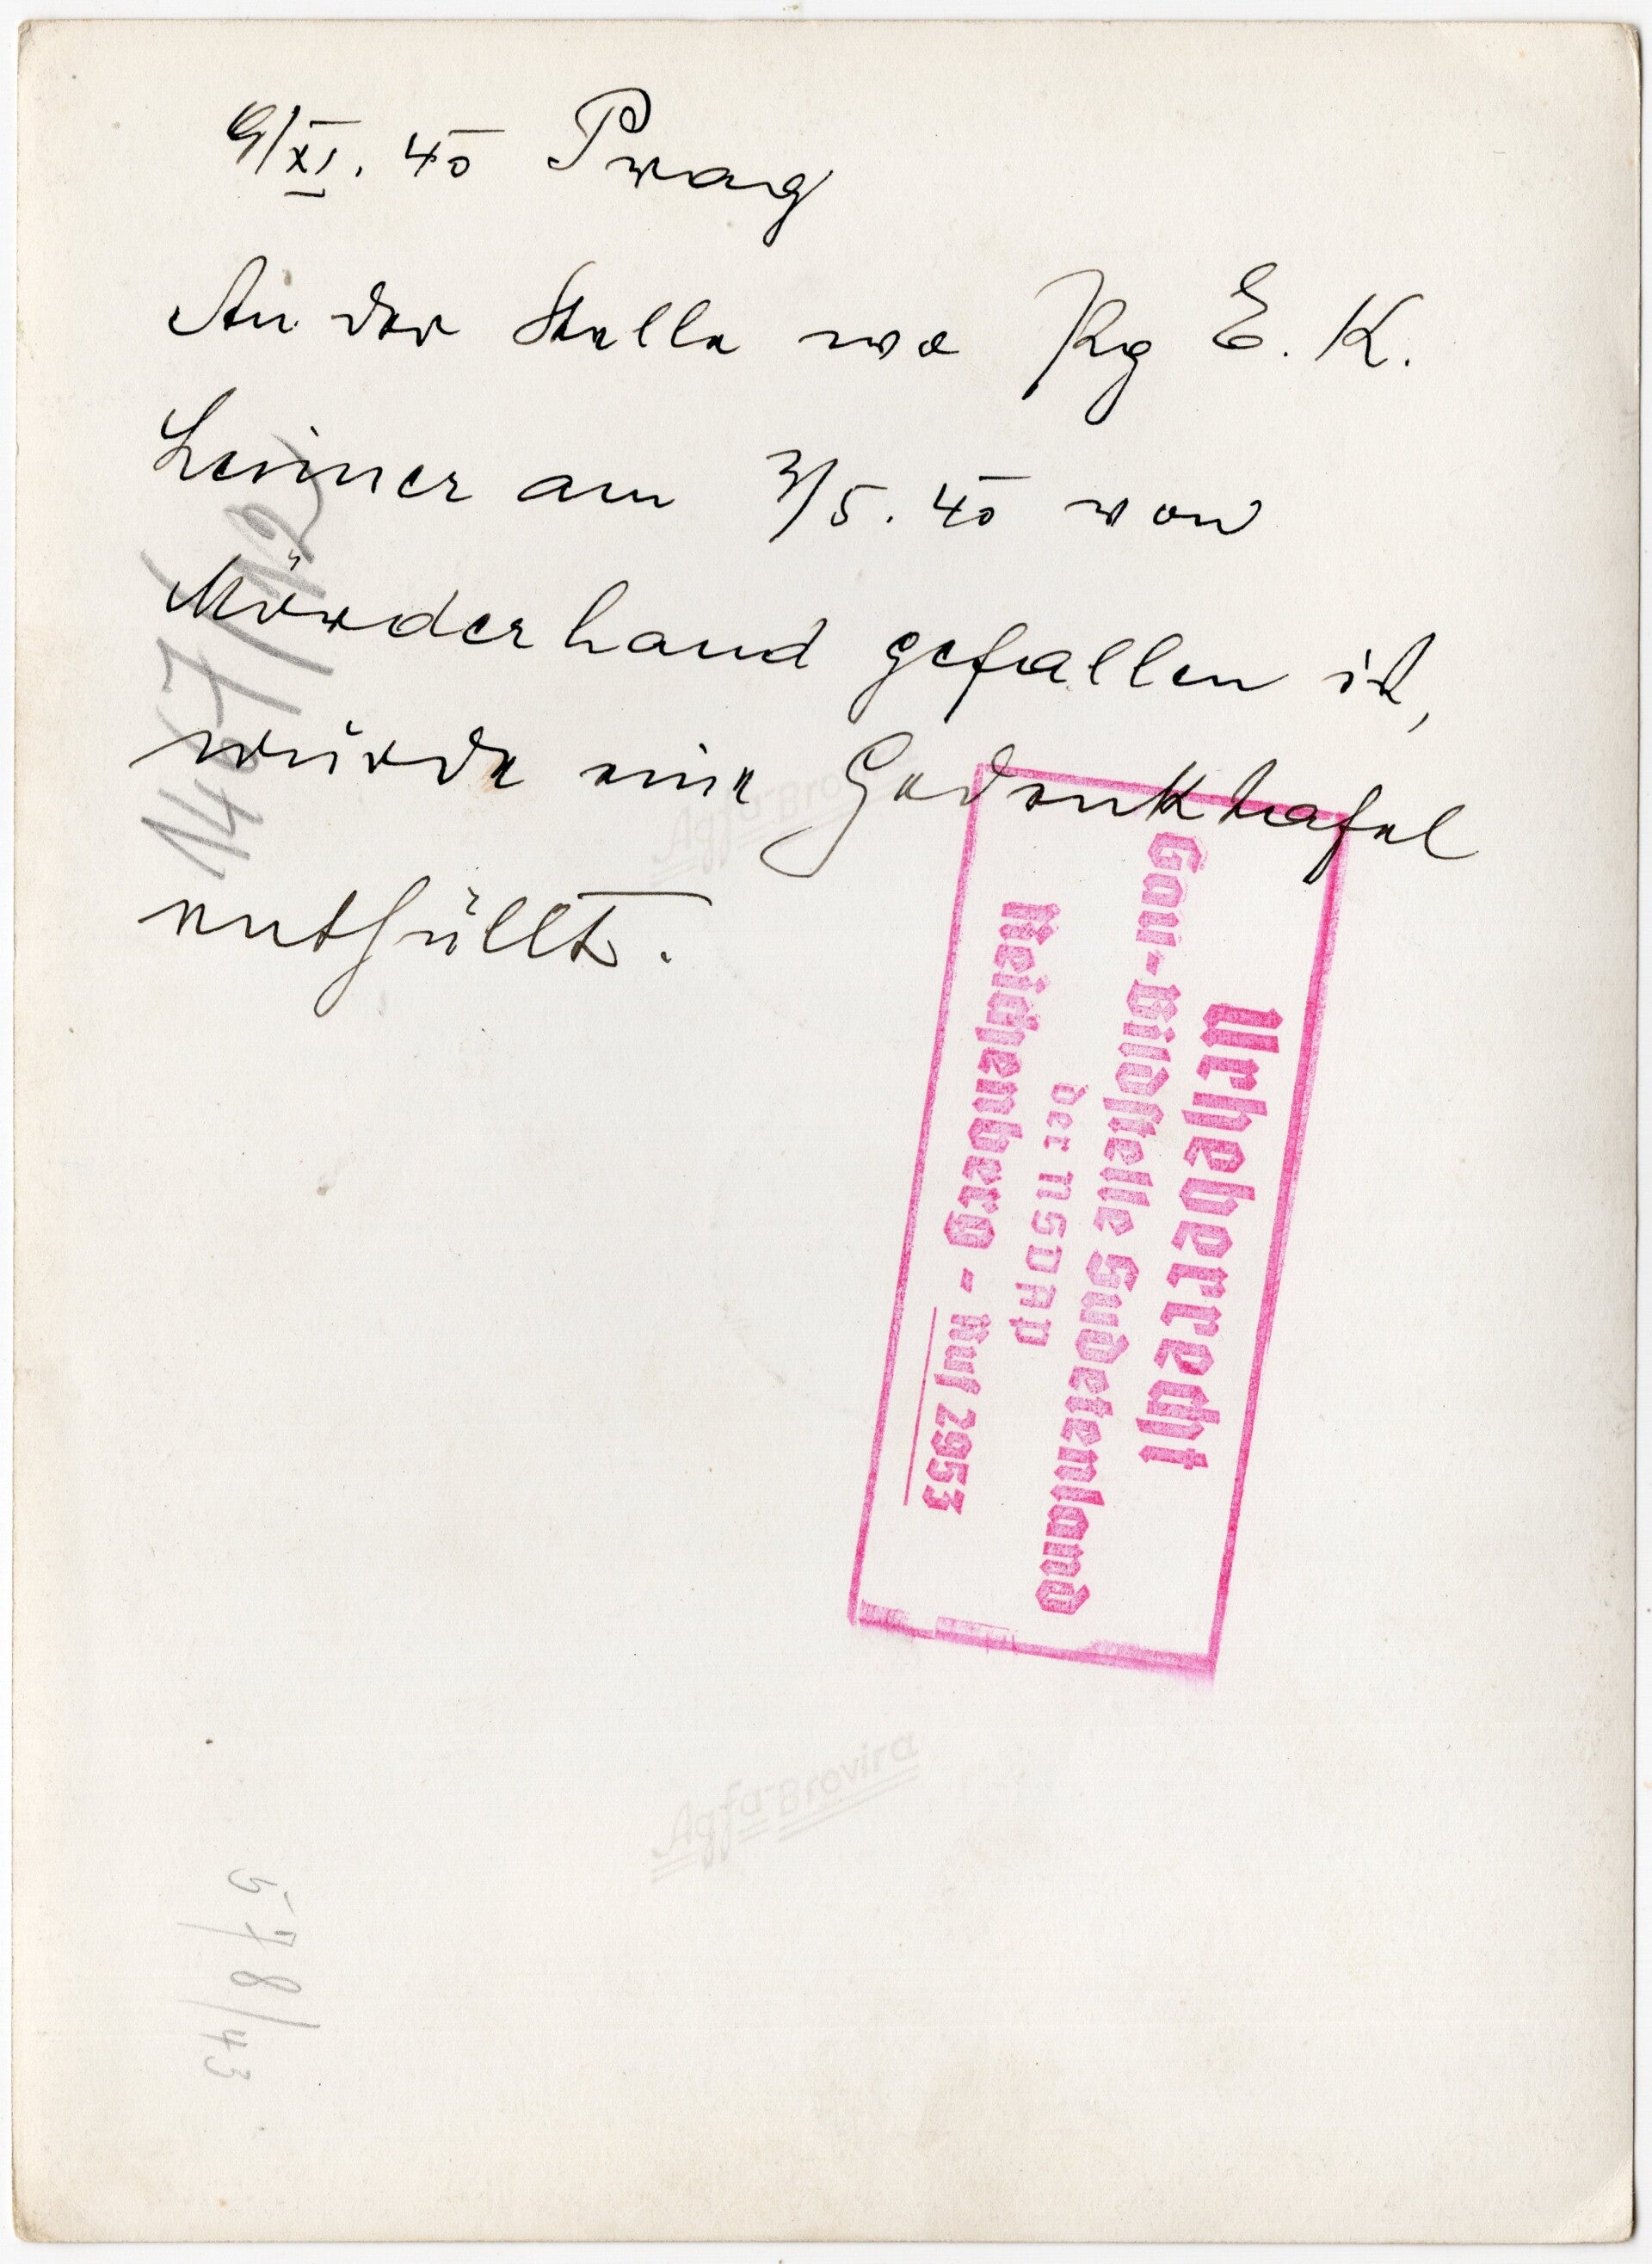 9/XI. 40 Prag
An der Stelle wo Pg E. K.
Leimer am 3/5. 40 von
Mörderhand gefallen ist,
wurde eine Gedenktafel
enthüllt.
1467/12
Urheberrecht
Gau-Bildstelle Sudetenland
der NSDAP
Reichenberg - Ruf 2953
Agfa-Brovira
Agfa-Brovira
578/43